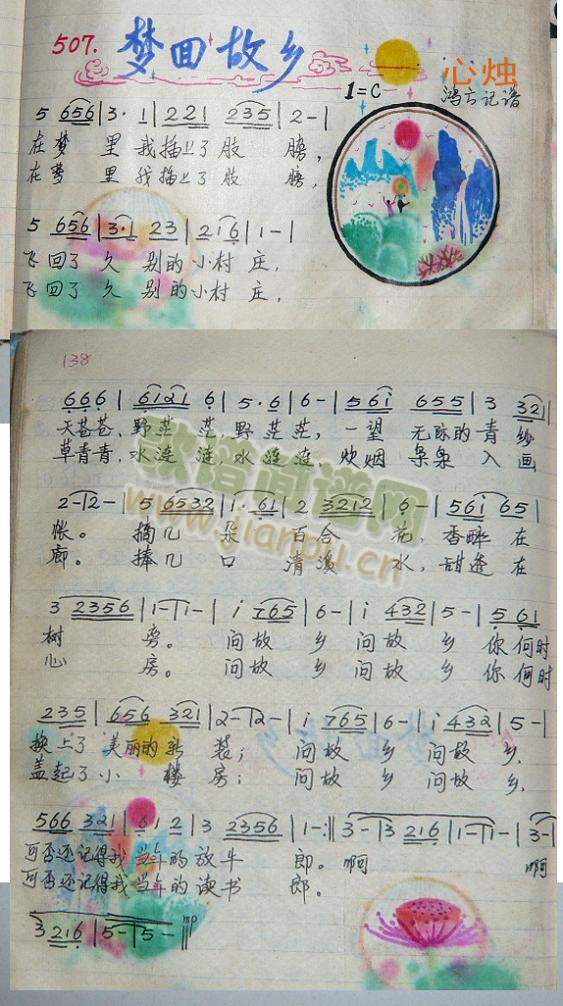 507. 梦回故乡
心烛
1=C 鸿云记谱
5 656|3· 1|2 2 1 2 3 5|2-|
在梦 里 我插上了肢 膀,
在梦 里 我插上了肢 膀,
5 656|3·1 23|216|1-|
飞回了久 别的小村 庄,
飞回了久 别的小村 庄,
138
666|6121 6|5·6|6-|561 655|3 321|
天苍苍,野茫 茫,野茫 茫,一望 无际的青 纱
草青青,水涟 涟,水涟 涟,炊烟 袅袅 入 画
2-|2-|5 6532|1· 61|2 3212|6-|561 65|
帐。 摘几 朵 百合 花, 香醉 在
廊。 捧几 口 清溪 水,甜透 在
3 2356|1-|1-|i 765|6-|i 432|5-|5 61|
树 旁。 问故 乡 问故 乡 你何时
心 房。 问故 乡 问故 乡 你何时
235|656 321|2-|2-|i 765|6-|i 432|5-|
换上了 美丽的新 装; 问故 乡 问故 乡,
盖起了小 楼 房; 问故 乡 问故 乡,
566 321|61 2|3 2356|1-:‖3-|3 216|1-|1-|3-|
可否还记得我当年的放牛 郎。啊 啊
可否还记得我当年的读书 郎。
3 216|5-|5-‖
mp
歌谱简谱网
www.jianpu.cn